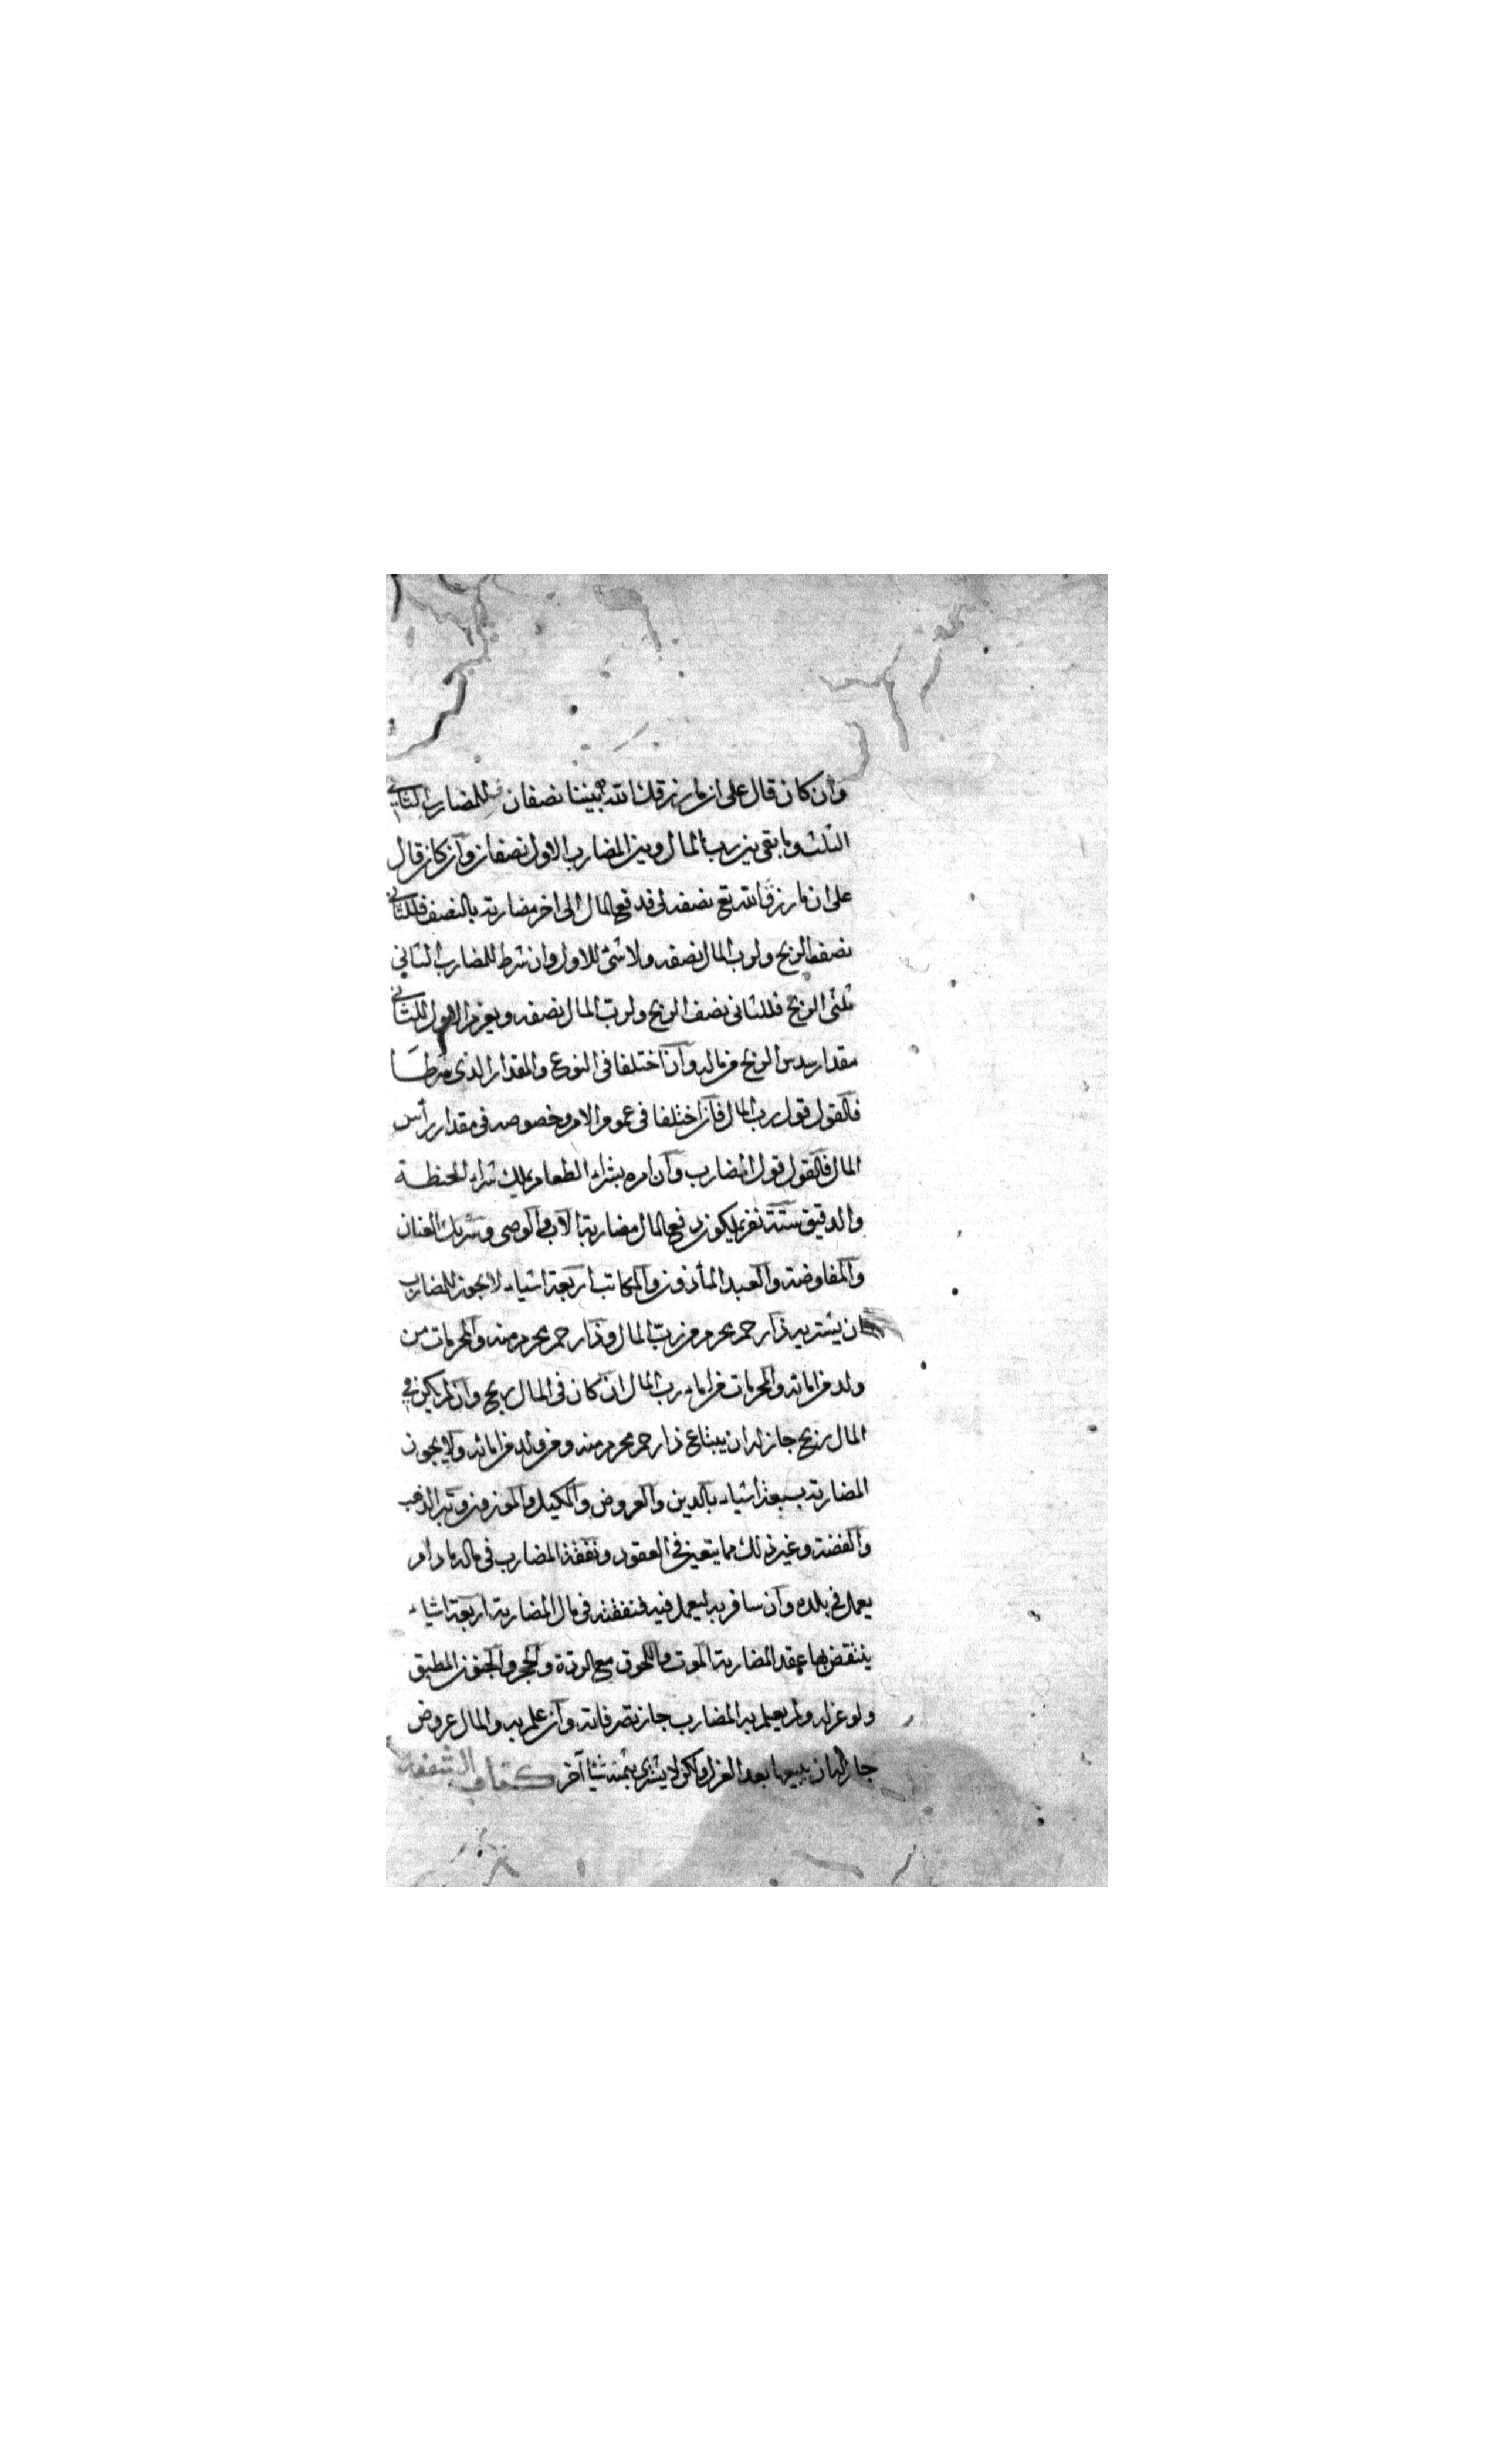 وان كان قال على ان ما رزقك الله بيننا نصفان فللمضارب الثاني
الثلث وما بقي بين رب المال وبين المضارب الاول نصفان وان كان قال
على ان ما رزق الله تع نصفه لي فدفع المال الى اخر مضاربة بالنصف فللثاني
نصف الربح ولرب المال نصفه ولا شئ للاول وان شرط للمضارب الثاني
ثلثى الربح فللثانى نصف الربح ولرب المال نصفه ويغرم الاول للثاني
مقدار سدس الربح من ماله وان اختلفا فى النوع والمقدار الذى شرطا
فالقول قول رب المال فان اختلفا فى عموم الامر وخصوصه فى مقدار رأس
المال فالقول قول المضارب وان امره بشراء الطعام يملك شراء الحنطة
والدقيق ستة نفر يملكون دفع المال مضاربة الاب والوصى وشريك العنان
والمفاوضة والعبد المأذون والمكاتب اربعة اشياء لا يجوز للمضارب
ان يشتريه ذا رحم محرم من رب المال وذا رحم محرم منه والمحرمات من
ولد من امائه والمحرمات من اماء رب المال ان كان فى المال ربح وان لم يكن في
المال ربح جاز له ان يبتاع ذا رحم محرم منه ومن ولد من امائه ولا يجوز
المضاربة بسبعة اشياء بالدين والعروض والكيل والموزون وتبر الذهب
والفضة وغير ذلك مما يتعين فى العقود ونفقة المضارب فى ماله ما دام
يعمل فى بلده وان سافر به ليعمل فيه فنفقته فى مال المضاربة اربعة اشياء
ينتقض بها عقد المضاربة الموت واللحوق مع الردة والحجر والجنون المطبق
ولو عزله ولم يعلم به المضارب جاز تصرفاته وان علم به والمال عروض
جاز له ان يبيعها بعد العزل ولكن لا يشترى بثمنه شيئا آخر كتاب الشفعة